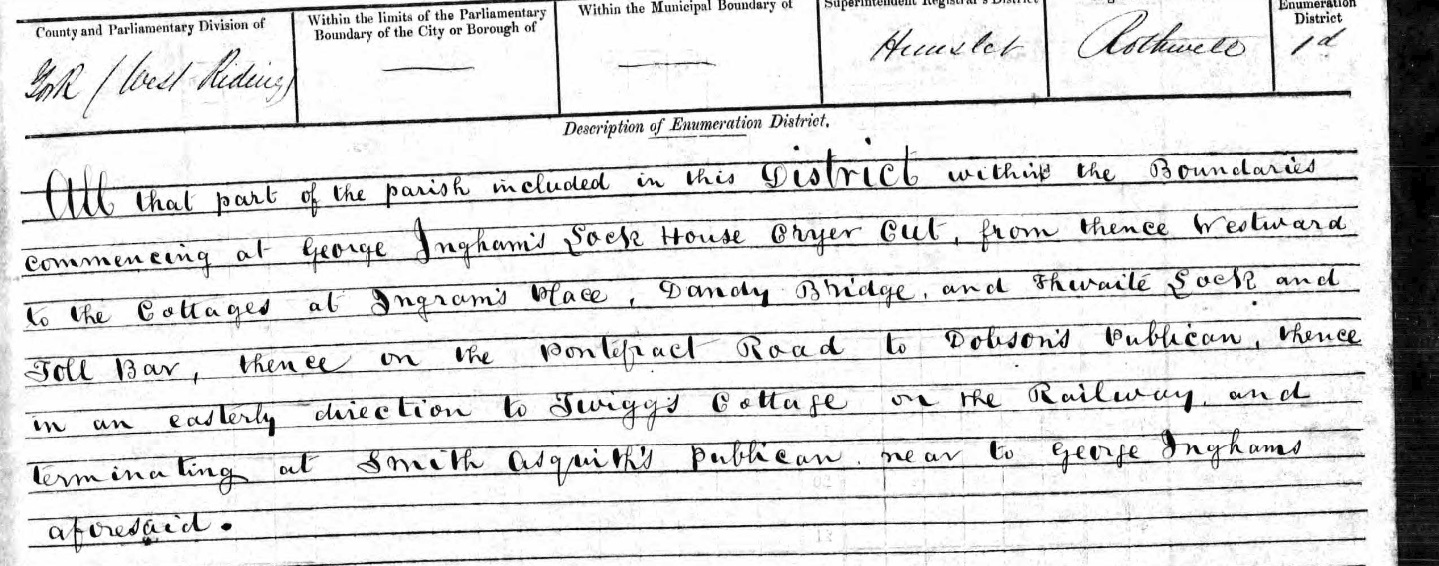 County and Parliamentary Division of
Within the limits of the Parliamentary
Boundary of the City or Borough of
Within the Municipal Boundary of
Superintendent Registrar's District
Enumeration
District
York (West Riding)
Hunslet
Rothwell
1d
Description of Enumeration District.
All that part of the parish included in this District within the Boundaries
commencing at George Ingham's Lock House Cryer Cut, from thence Westward
to the Cottages at Ingram's Place, Dandy Bridge, and Thwaite Lock and
Toll Bar, thence on the Pontefract Road to Dobson's Publican, thence
in an easterly direction to Twigg's Cottage on the Railway, and
terminating at Smith Asquith's Publican near to George Inghams
aforesaid.